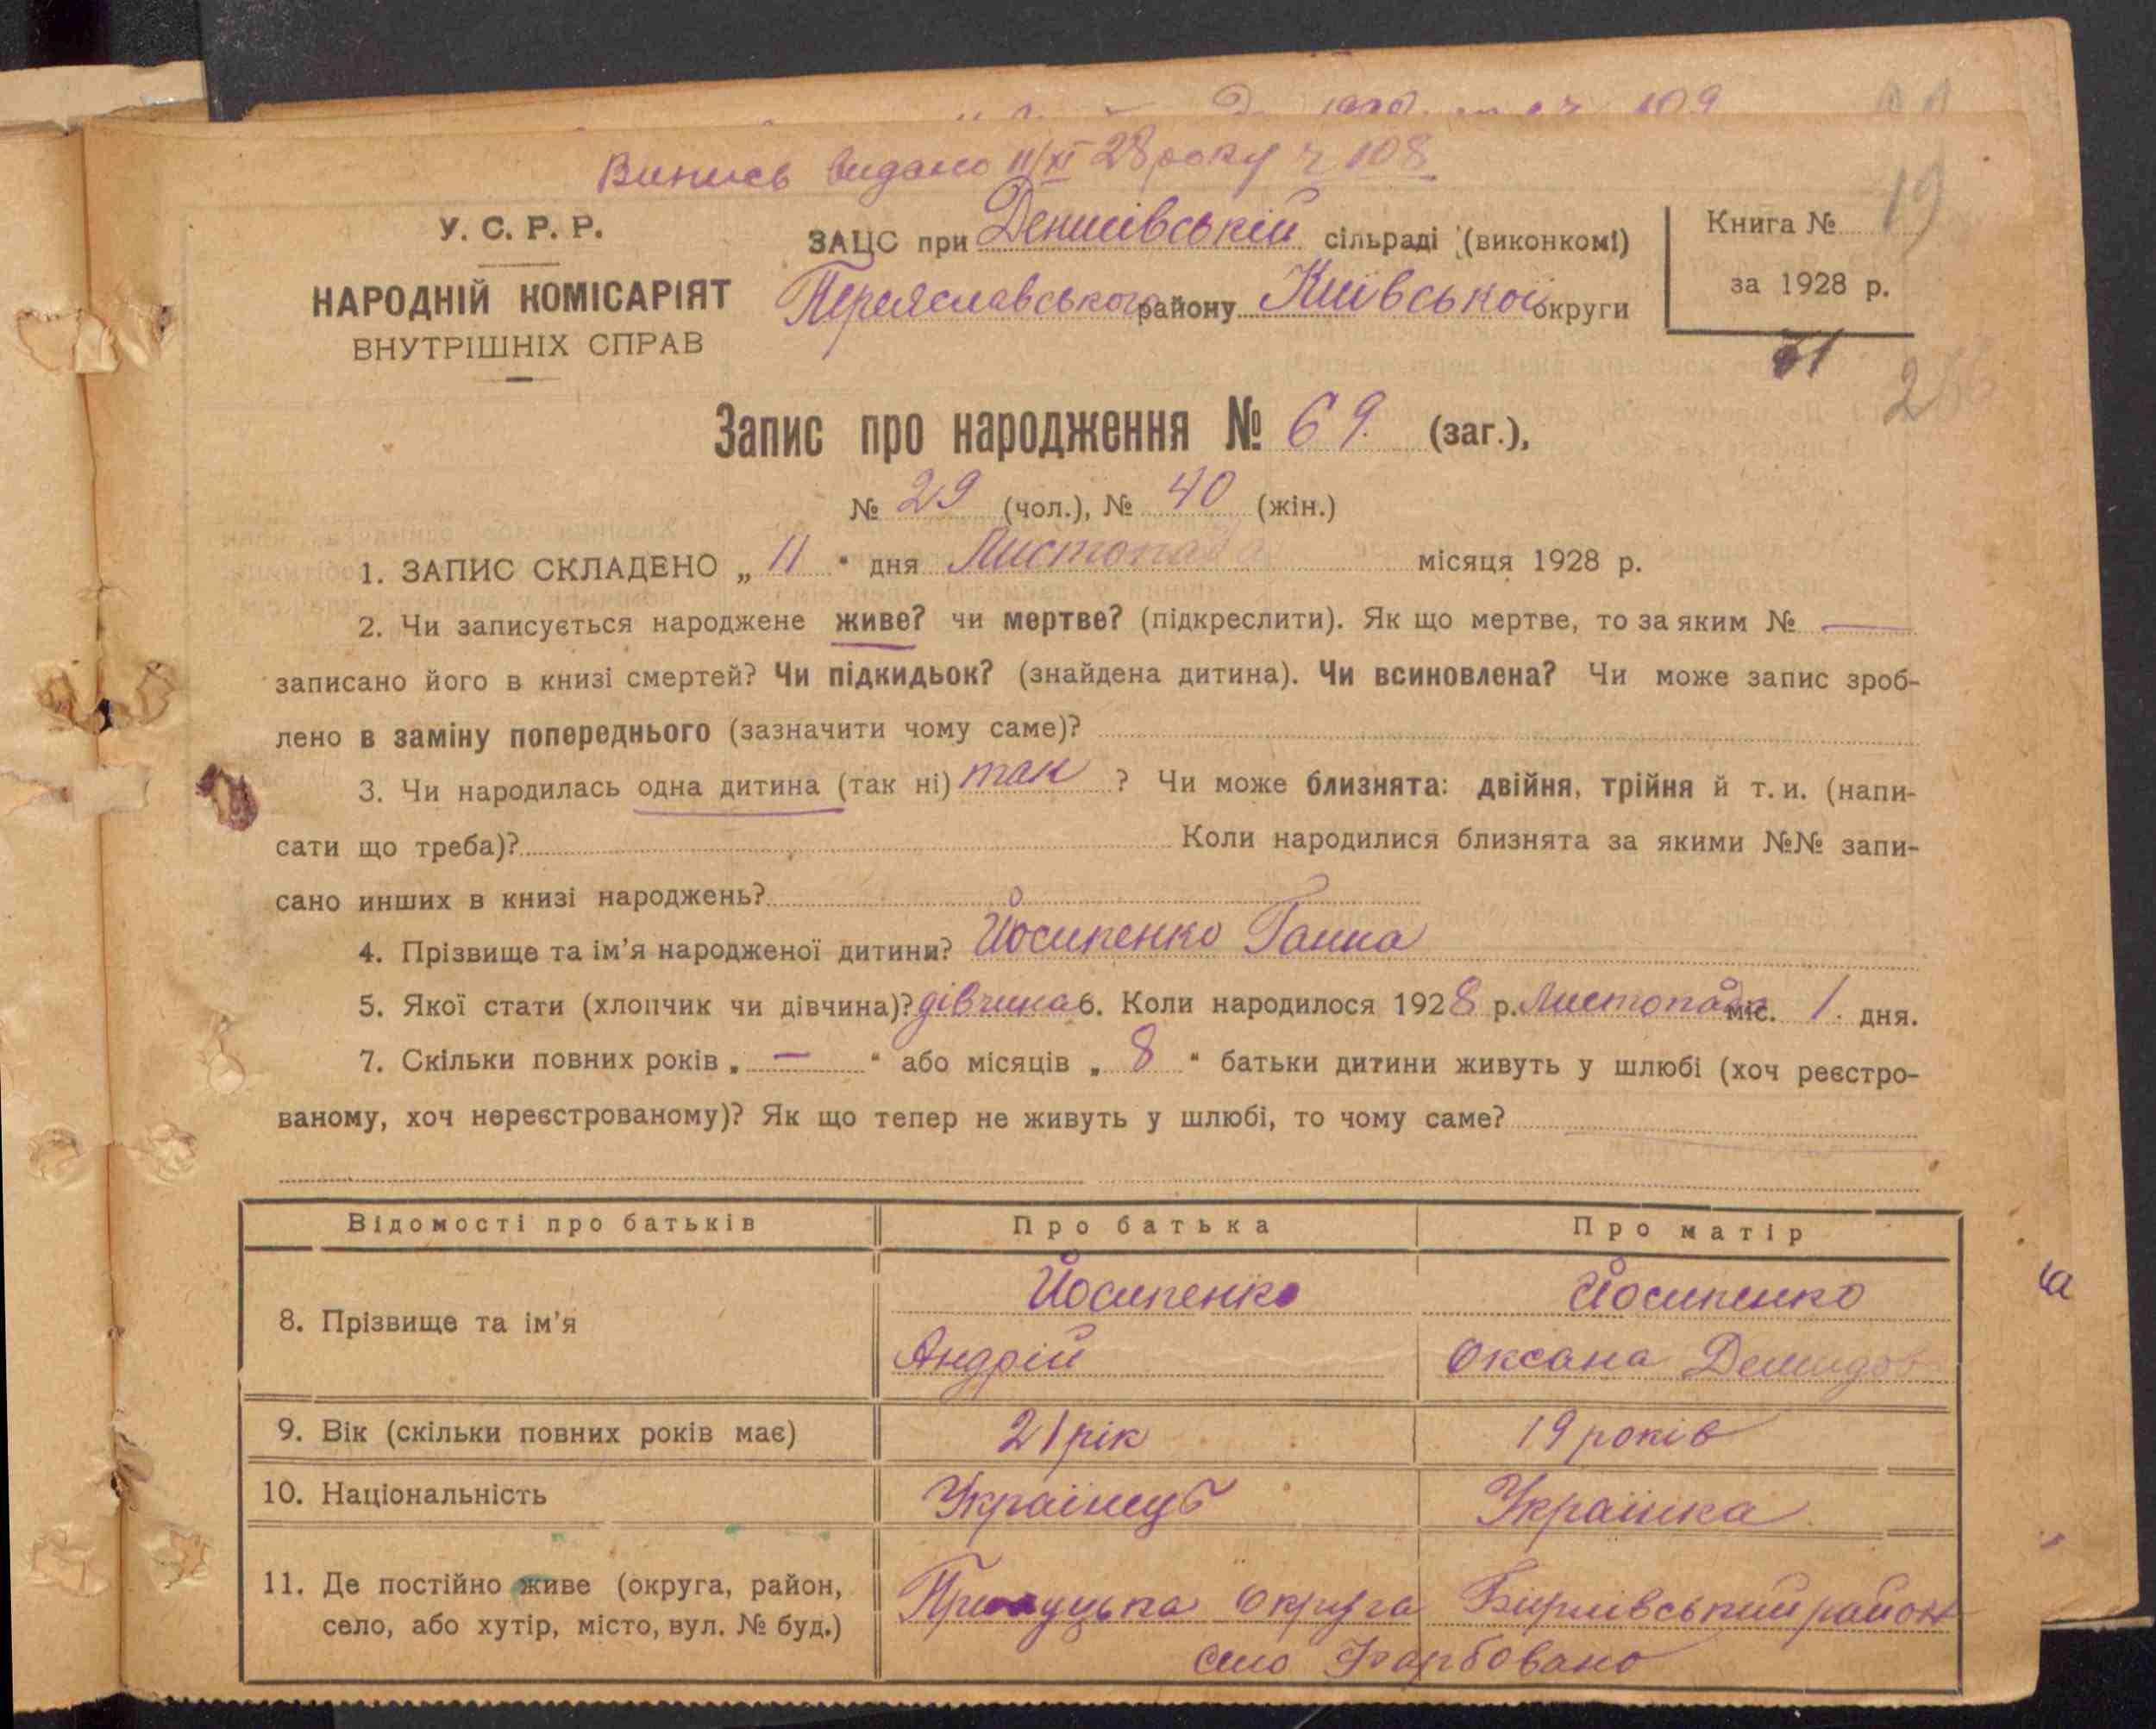 Випись видано 11/XI 28 року ч 108
У. С. Р. Р.
НАРОДНІЙ КОМІСАРІЯТ
ВНУТРІШНІХ СПРАВ
ЗАЦС при Денисівській сільраді (виконкомі)
Переяславського району Київської округи
Книга № 19
за 1928 р.
Запис про народження № 69. (заг.),
№ 29 (чол.), № 40 (жін.)
1. ЗАПИС СКЛАДЕНО „ 11 “ дня Листопада місяця 1928 р.
2. Чи записується народжене живе? чи мертве? (підкреслити). Як що мертве, то за яким № —
записано його в книзі смертей? Чи підкидьок? (знайдена дитина). Чи всиновлена? Чи може запис зроб-
лено в заміну попереднього (зазначити чому саме)?
3. Чи народилась одна дитина (так ні) так ? Чи може близнята: двійня, трійня й т. и. (напи-
сати що треба)? Коли народилися близнята за якими №№ запи-
сано инших в книзі народжень?
4. Прізвище та ім’я народженої дитини? Йосипенко Ганна
5. Якої стати (хлопчик чи дівчина)? дівчина 6. Коли народилося 1928 р. Листопада міс. 1. дня.
7. Скільки повних років „ — “ або місяців „ 8 “ батьки дитини живуть у шлюбі (хоч реєстро-
ваному, хоч нереєстрованому)? Як що тепер не живуть у шлюбі, то чому саме?
Відомості про батьків Про батька Про матір
8. Прізвище та ім’я Йосипенко Йосипенко
Андрій Оксана Демидов
9. Вік (скільки повних років має) 21 рік 19 років
10. Національність Українець Українка
11. Де постійно живе (округа, район, село, або хутір, місто, вул. № буд.) Прилуцька округа Бирлівський район
село